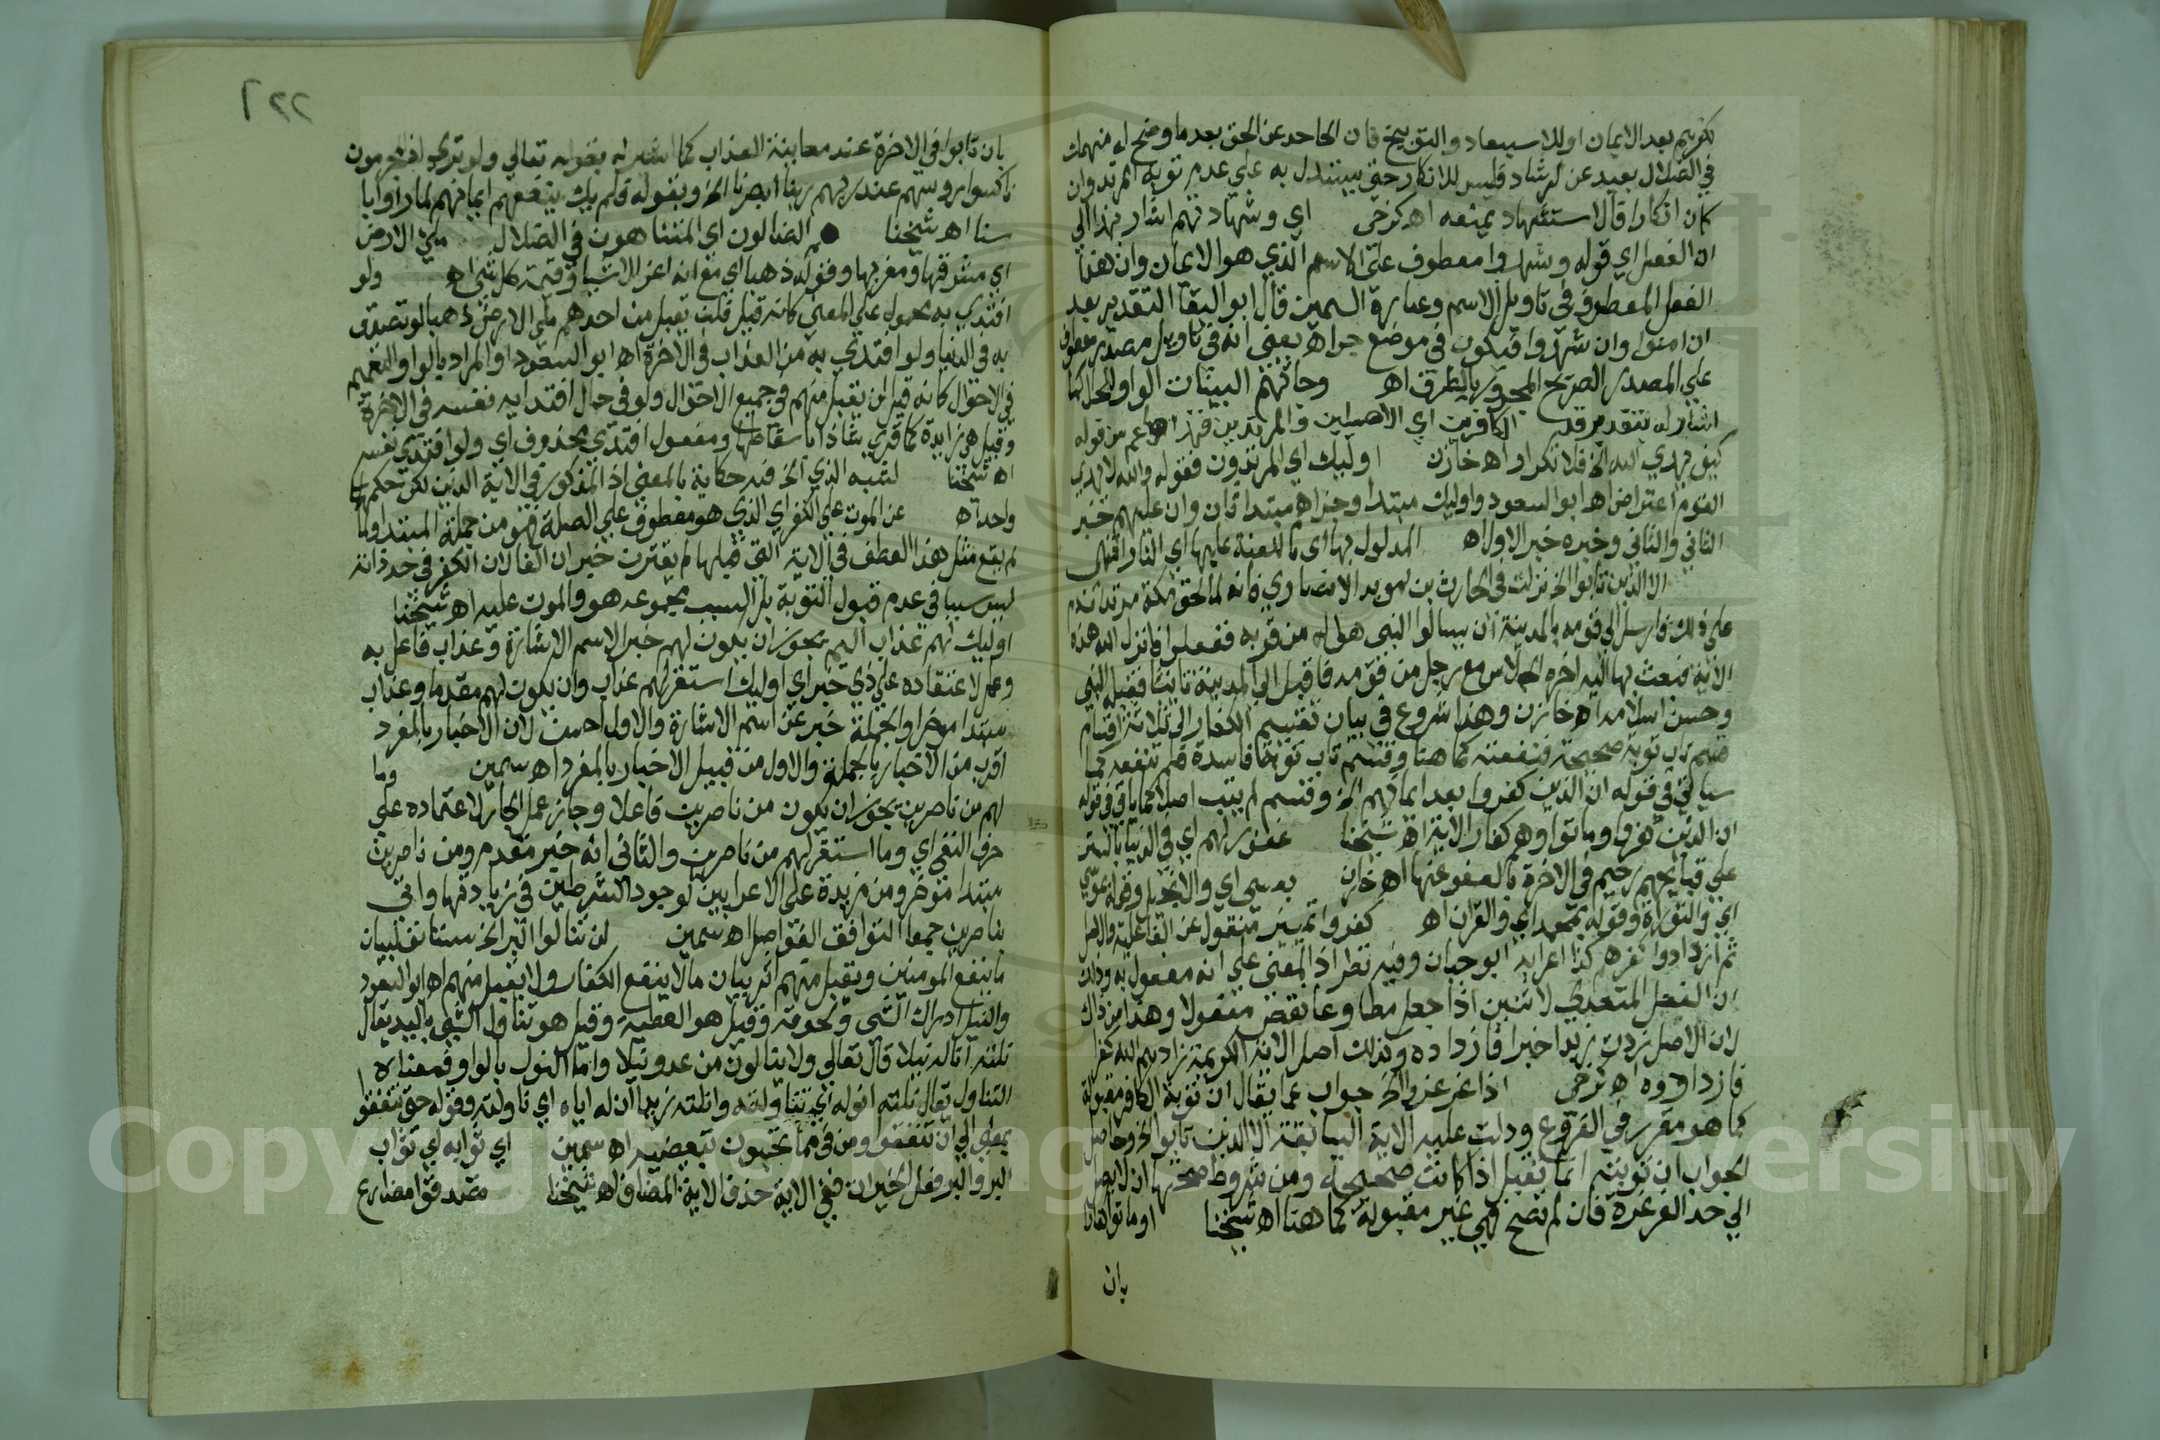 كفرهم بعد الايمان او للاستبعاد والتوبيخ فان الجاحد عن الحق بعد ما وضح له منهمك
في الضلال بعيد عن الرشاد فليس للانكار حتي يستدل به علي عدم توبة المرتد وان
كان انكارا قال استشهاد يمنعه اه كرخي اي وشهادتهم اشار بهذا الي
ان الفعل اي قوله وشهدوا معطوف علي الاسم الذي هو الايمان وان هذا
الفعل المعطوف في تاويل الاسم وعبارة السمين قال ابو البقا التقدير بعد
ان امنوا وان شهدوا فيكون في موضع جر اه يعني انه في تاويل مصدر معطوف
علي المصدر الصريح المجرور بالظرف اه وجاءهم البينات الواو للحال كما
اشار له بتقدير قد الكافرين اي الاصليين والمرتدين فهذا اعم من قوله
كيف يهدي الله الخ فلا تكرار اه خازن اوليك اي المرتدون فقوله والله لا يهدي
القوم اعتراض اه ابو السعود واوليك مبتدا وجزاهم مبتدا ثان وان عليهم خبر
الثاني والثاني وخبره خبر الاول اه المدلول بها اي باللعنة عليها اي النار انتهي
الا الذين تابوا الخ نزلت في الحارث بن سويد الانصاري فانه لما لحق بمكة مرتدا ندم
علي ذلك فارسل الي قومه بالمدينة ان يسالوا النبي هل له من توبة ففعلوا فانزل الله هذه
الاية فبعث بها اليه اخوه الجلاس مع رجل من قومه فاقبل الي المدينة تائبا فقبله النبي
وحسن اسلامه اه خازن وهذا شروع في بيان تقسيم الكفار الي ثلاثة اقسام
قسم تاب توبة صحيحة فنفعته كما هنا وقسم تاب توبة فاسدة فلم تنفعه كما
سياتي في قوله ان الذين كفروا بعد ايمانهم الخ وقسم لم يتب اصلا كما ياتي في قوله
ان الذين كفروا وماتوا وهم كفار الاية اه شيخنا غفور لهم اي في الدنيا بالستر
علي قبائحهم رحيم في الاخرة بالعفو عنها اه خازن بعيسى اي والانجيل وقوله بموسي
اي والتوراة وقوله بمحمد اي والقران اه كفروا تمييز منقول عن الفاعلية والاصل
ثم ازدادوا كفرهم كذا اعربه ابو حيان وفيه نظر اذ المعني علي انه مفعول به وذلك
ان الفعل المتعدي لاثنين اذا جعل مطاوعا نقص مفعولا وهذا من ذاك
لان الاصل زدت زيدا خيرا فازداده وكذلك اصل الاية الكريمة زادهم الله كفرا
فازدادوه اه كرخي اذا غرغروا الخ جواب عما يقال ان توبة الكافر مقبولة
كما هو مقرر في الفروع ودلت عليه الاية السابقة الا الذين تابوا الخ وحاصل
الجواب ان توبته انما تقبل اذا كانت صحيحة ومن شروط صحتها ان لا يصل
الي حد الغرغرة فان لم تصح فهي غير مقبولة كما هنا اه شيخنا او ماتوا كفارا
بان
٢٢٦
بان تابوا في الاخرة عند معاينة العذاب كما اشير له بقوله تعالي ولو تري اذ المجرمون
ناكسوا رووسهم عند ربهم ربنا ابصرنا الخ وبقوله فلم يك ينفعهم ايمانهم لما راوا با
سنا اه شيخنا هم الضالون اي المتناهون في الضلال ملئ الارض
اي مشرقها ومغربها وقوله ذهبا اي مع انه اعز الاشيا وقيمة كل شئ اه ولو
افتدي به محمول علي المعني كانه قيل فلن يقبل من احدهم ملئ الارض ذهبا لو تصدق
به في الدنيا ولو افتدي به من العذاب في الاخرة اه ابو السعود او المراد بالواو التعميم
في الاحوال كانه قيل لن يقبل منهم في جميع الاحوال ولو في حال افتدائه نفسه في الاخرة
وقيل هي زايدة كما قري شاذا باسقاطها ومفعول افتدي محذوف اي ولو افتدي نفسه
اه شيخنا لشبه الذي الخ فيه حكاية بالمعني اذ المذكور في الاية الذين لكن حكمهما
واحد اه عن الموت علي الكفر اي الذي هو معطوف علي الصلة فهو من جملة المبتدا ولما
لم يقع مثل هذا العطف في الاية التي قبلها لم يقترن خبر ان الفا لان الكفر في حد ذاته
ليس سببا في عدم قبول التوبة بل السبب مجموعه هو والموت عليه اه شيخنا
اوليك لهم عذاب اليم يجوز ان يكون لهم خبر الاسم الاشارة وعذاب فاعل به
وعمل لاعتماده علي ذي خبر اي اوليك استقر لهم عذاب وان يكون لهم مقدما وعذاب
مبتدا موخرا والجملة خبر عن اسم الاشارة والاول احسن لان الاخبار بالمفرد
اقرب من الاخبار بالجملة والاول من قبيل الاخبار بالمفرد اه سمين وما
لهم من ناصرين يجوز ان يكون من ناصرين فاعلا وجاز عمل الجار لاعتماده علي
حرف النفي اي وما استقر لهم من ناصرين والثاني انه خبر مقدم ومن ناصرين
مبتدا موخر ومن مزيدة علي الاعرابين لوجود الشرطين في زيادتها واتي
بناصرين جمعا لتوافق الفواصل اه سمين لن تنالوا البر الخ مستانف لبيان
ما ينفع المومنين ويقبل منهم اثر بيان ما لا ينفع الكفار ولا يقبل منهم اه ابو السعود
والنيل ادراك الشي ولحوقه وقيل هو العطية وقيل هو تناول الشي باليد يقال
نلته اناله نيلا قال تعالي ولا ينالون من عدو نيلا واما النول بالواو فمعناه
التناول يقال نلته انوله اي تناولته وانلته زيدا انله اياه اي ناولته وقوله حتي تنفقوا
بمعني الي ان تنفقوا ومن في مما تحبون تبعضية اه سمين اي ثوابه اي ثواب
البر والبر فعل الخيرات ففي الاية حذف المضاف اه شيخنا تصدقوا مضارع